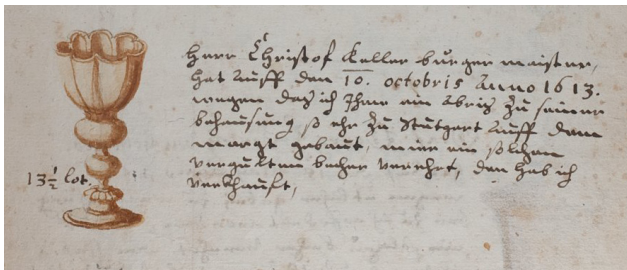 Herr Christof Keller burgermaister,
hat auff den 10. octobris Anno 1613.
wegen das ich Ihme ein Abriß zu seiner
behausung so ehr zu Stutgart auff dem
marGt gebaut, mier ein solchen
vergulten becher verehrt, den hab ich
verkhaufft,
13 1/2 lot.